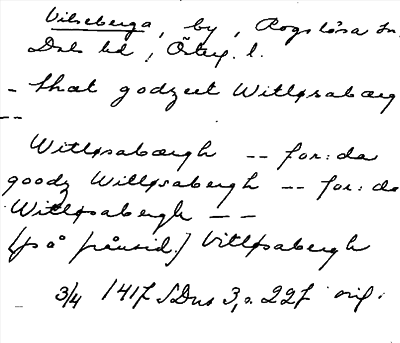 Vilseberga, by, Rogslösa sn.
Dals hd, Österg. l.
- thæt godzeet Witløsabærg
--
Witløsabærgh -- for:da
goodz Willøsabergh -- for:da
Witløsabergh --
[på frånsid.] Vitløsabergh
3/4 1417 SDns 3, s. 227 orig.